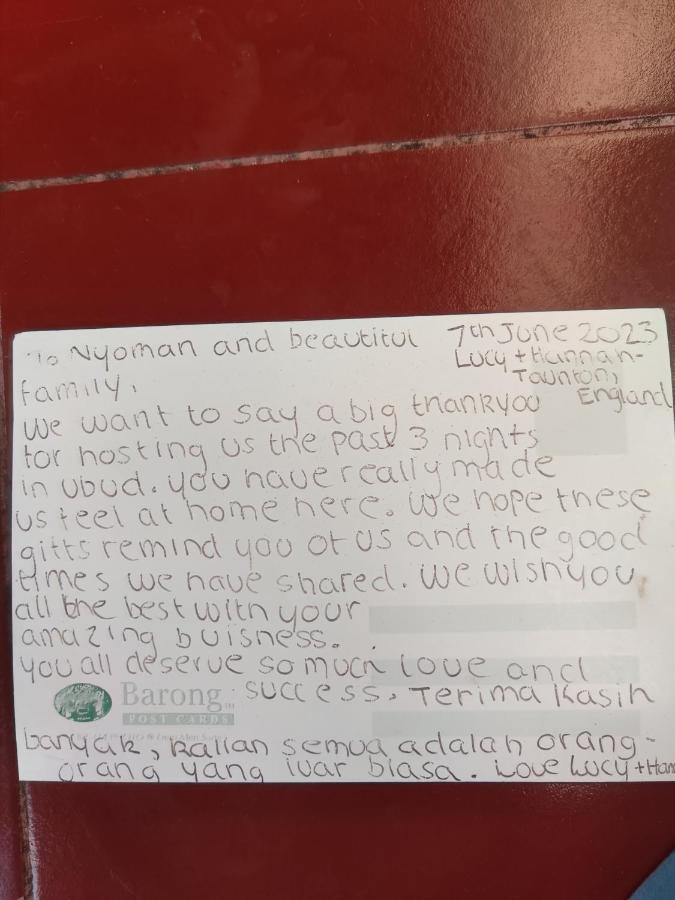 To Nyoman and beautiful 7th June 2023
Lucy + Hannah -
Taunton,
England
family,
We want to say a big thankyou
for hosting us the past 3 nights
in Ubud. you have really made
us feel at home here. We hope these
gifts remind you of us and the good
times we have shared. We wish you
all the best with your
amazing buisness.
you all deserve so much love and
success. Terima Kasih
Barong TM
POST CARDS
banyak, kalian semua adalah orang-
orang yang luar biasa. Love Lucy + Han